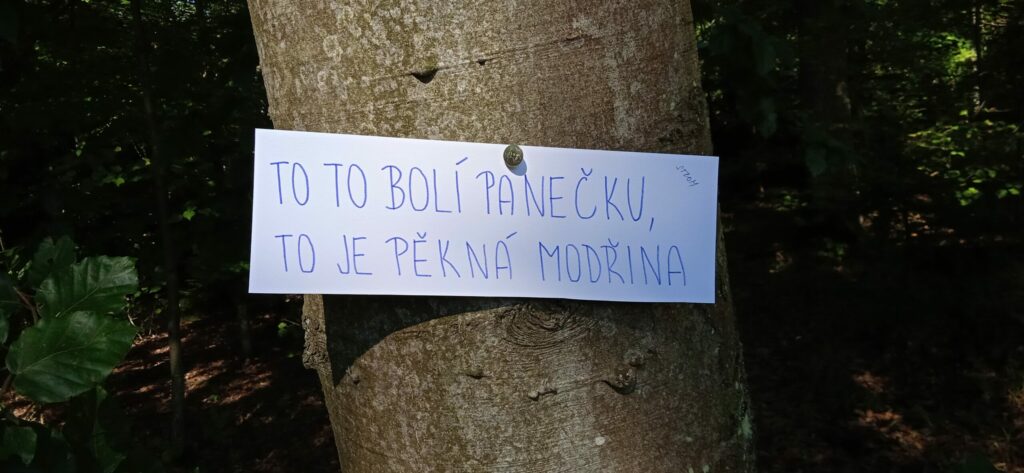 TO TO BOLÍ PANEČKU,
TO JE PĚKNÁ MODŘINA